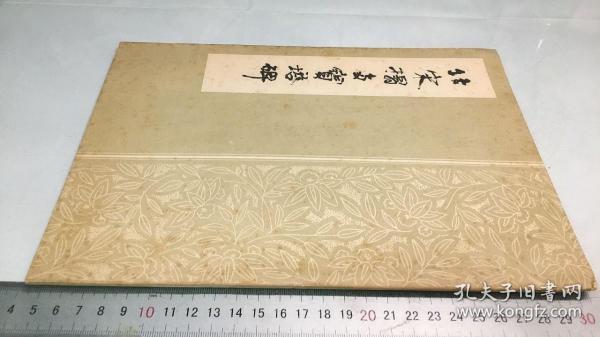 北宋搨多寳塔碑
孔夫子旧書网
www.kongfz.com
4 5 6 7 8 9 10 11 12 13 14 15 16 17 18 19 20 21 22 23 24 25 26 27 28 29 30